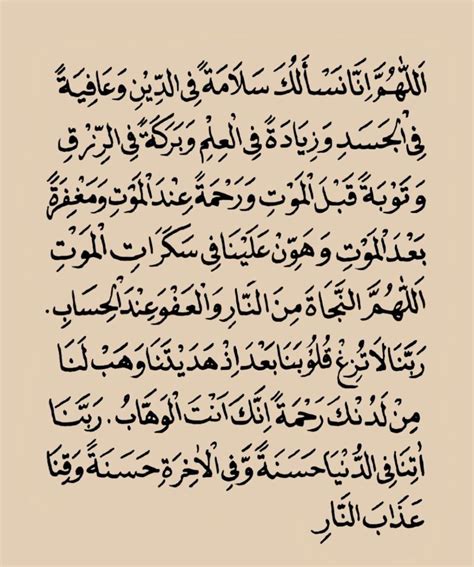 اَللّٰهُمَّ اِنَّا نَسْأَلُكَ سَلَامَةً فِى الدِّيْنِ وَعَافِيَةً
فِى الْجَسَدِ وَزِيَادَةً فِى الْعِلْمِ وَبَرَكَةً فِى الرِّزْقِ
وَتَوْبَةً قَبْلَ الْمَوْتِ وَرَحْمَةً عِنْدَ الْمَوْتِ وَمَغْفِرَةً
بَعْدَ الْمَوْتِ وَهَوِّنْ عَلَيْنَا فِى سَكَرَاتِ الْمَوْتِ
اَللّٰهُمَّ النَّجَاةَ مِنَ النَّارِ وَالْعَفْوَ عِنْدَ الْحِسَابِ.
رَبَّنَا لَا تُزِغْ قُلُوْبَنَا بَعْدَ اِذْ هَدَيْتَنَا وَهَبْ لَنَا
مِنْ لَدُنْكَ رَحْمَةً اِنَّكَ اَنْتَ الْوَهَّابُ. رَبَّنَا
اٰتِنَا فِى الدُّنْيَا حَسَنَةً وَّفِى الْاٰخِرَةِ حَسَنَةً وَّقِنَا
عَذَابَ النَّارِ